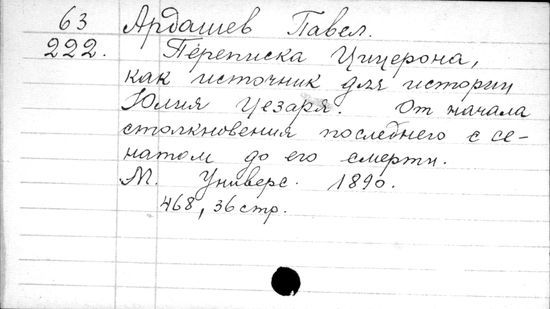 63 Ардашев Павел.
222. Переписка Цицерона,
как источник для истории
Юлия Цезаря. От начала
столкновения последнего с се-
натом до его смерти.
М. Универс. 1890.
468, 36 стр.